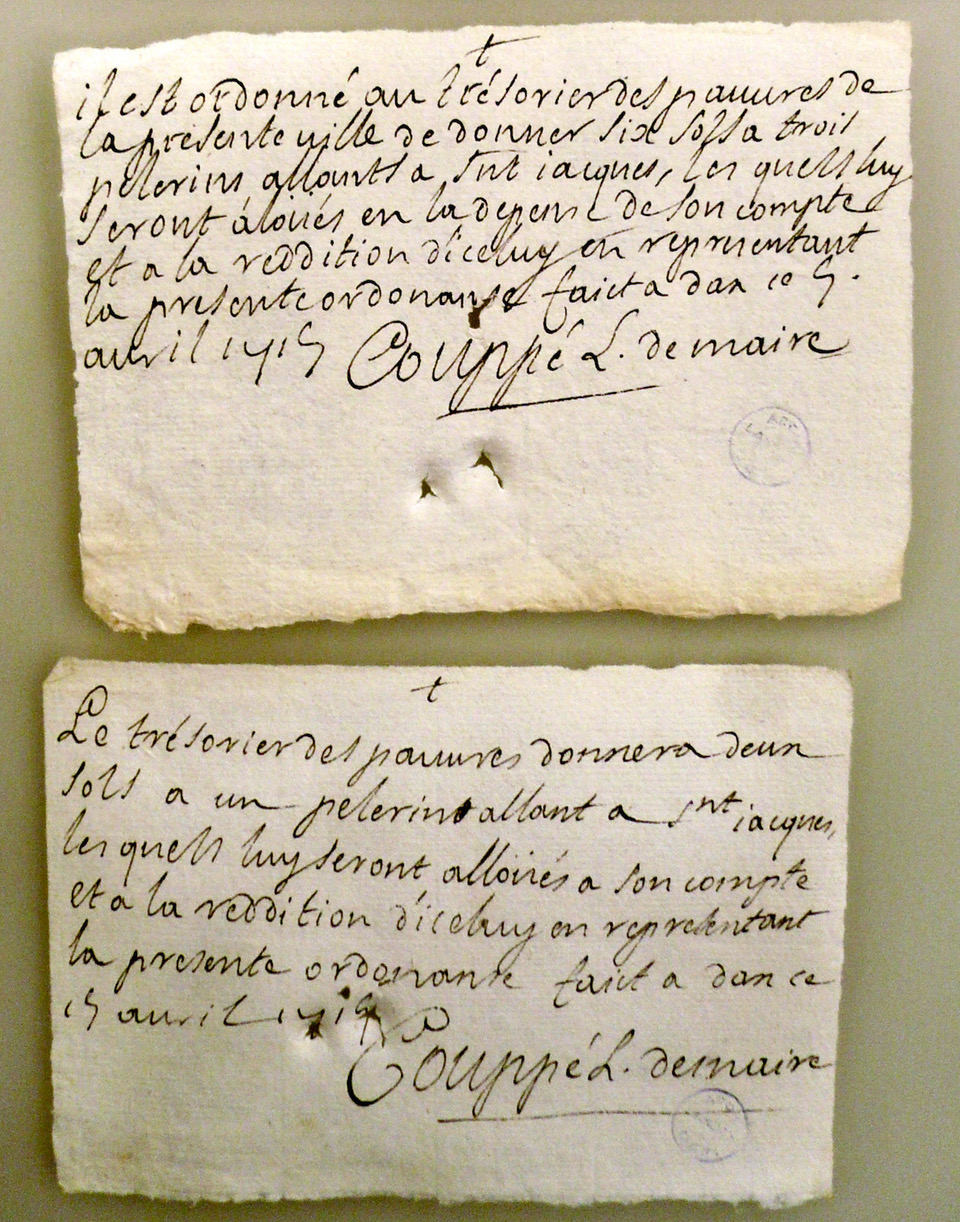 il est ordonné au trésorier des pauures de
la présente uille de donner six sols a trois
pelerins allants a Snt iacques, les quels luy
seront áloüés en la depense de son compte
et a la reddition d'iceluy en representant
la presente ordonanse faict a dax ce 5.
auril 1715 Couppé L. de maire
Le trésorier des pauures donnera deux
sols a un pelerin allant a Snt iacques,
les quels luy seront alloüés a son compte
et a la reddition d'iceluy en representant
la presente ordonanse faict a dax ce
15 auril 1715
Couppé L. de maire